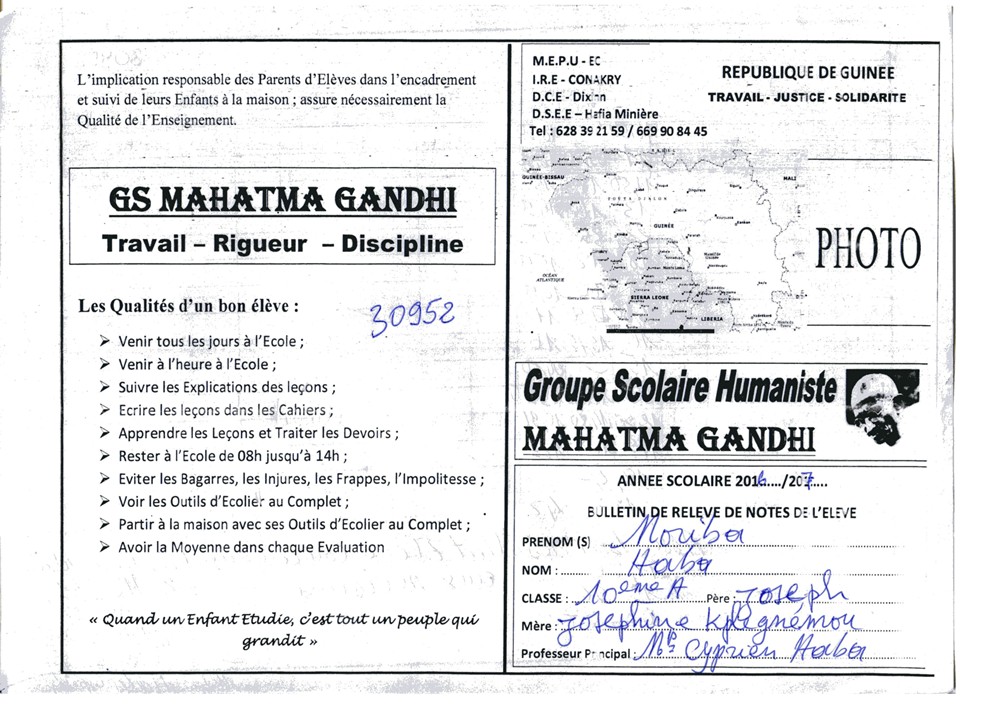 L'implication responsable des Parents d'Elèves dans l'encadrement
et suivi de leurs Enfants à la maison ; assure nécessairement la
Qualité de l'Enseignement.
GS MAHATMA GANDHI
Travail – Rigueur – Discipline
Les Qualités d'un bon élève :
30952
➢ Venir tous les jours à l'Ecole ;
➢ Venir à l'heure à l'Ecole ;
➢ Suivre les Explications des leçons ;
➢ Ecrire les leçons dans les Cahiers ;
➢ Apprendre les Leçons et Traiter les Devoirs ;
➢ Rester à l'Ecole de 08h jusqu'à 14h ;
➢ Eviter les Bagarres, les Injures, les Frappes, l'Impolitesse ;
➢ Voir les Outils d'Ecolier au Complet ;
➢ Partir à la maison avec ses Outils d'Ecolier au Complet ;
➢ Avoir la Moyenne dans chaque Evaluation
« Quand un Enfant Etudie, c'est tout un peuple qui
grandit »
M.E.P.U - EC
I.R.E - CONAKRY
D.C.E - Dixinn
D.S.E.E – Hafia Minière
Tel : 628 39 21 59 / 669 90 84 45
REPUBLIQUE DE GUINEE
TRAVAIL - JUSTICE - SOLIDARITE
GUINÉE-BISSAU
MALI
FOUTA DJALON
GUINÉE
OCÉAN
ATLANTIQUE
SIERRA LEONE
LIBERIA
PHOTO
Groupe Scolaire Humaniste
MAHATMA GANDHI
ANNEE SCOLAIRE 2016..../207....
BULLETIN DE RELEVE DE NOTES DE L'ELEVE
PRENOM (S) Moriba
NOM : Haba
CLASSE : 10ème A Père : Joseph
Mère : Josephine
Professeur Principal : Cyprien Haba